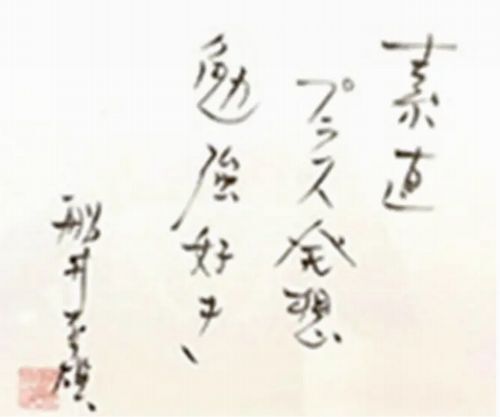 素直
プラス発想
勉強好き
船井幸雄